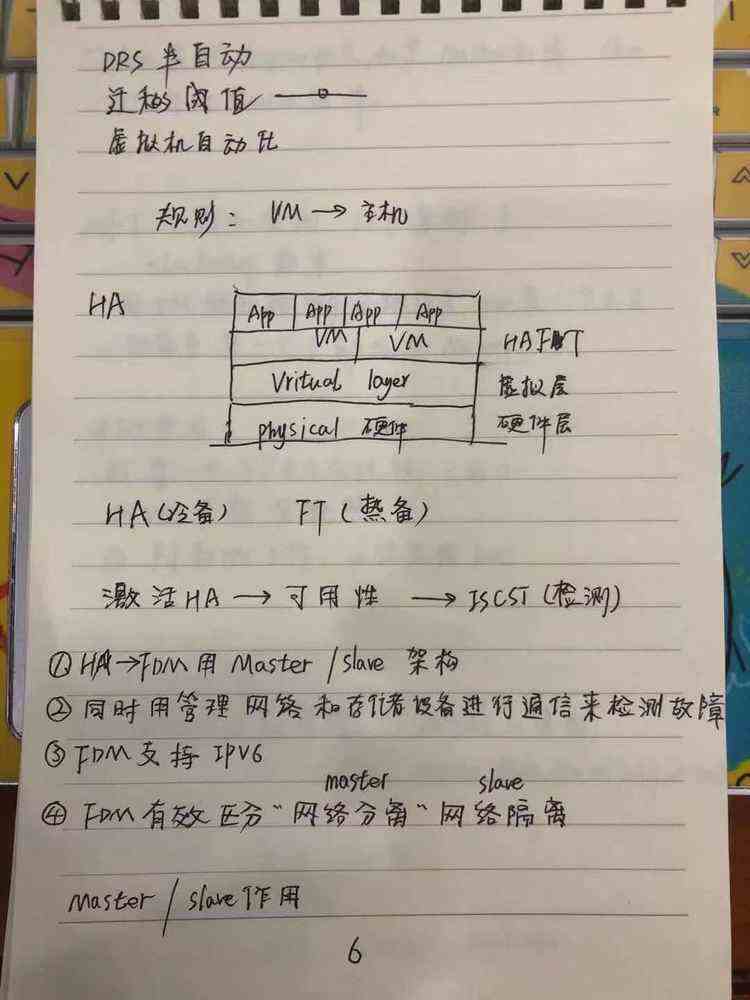 DRS 半自动
迁移 阈值
虚拟机自动化
规则: VM → 主机
HA
App App App App
VM VM HA FT
Vritual layer 虚拟层
physical 硬件 硬件层
HA(冷备) FT(热备)
激活HA → 可用性 → ISCST(检测)
① HA→FDM用 Master / slave 架构
② 同时用管理网络和存储设备进行通信来检测故障
③ FDM支持 IPV6
master slave
④ FDM有效区分“网络分离”网络隔离
master / slave作用
6